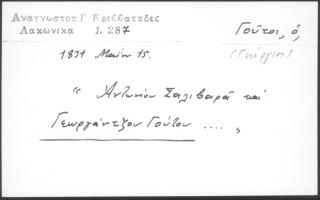 Αναγνωστοπ Γ Κρεββαταδες
Λακωνικα 1. 287
Γοῦτοι, ὁ,
(Γεώργιος)
1831 Μαΐου 15.
" Ἀντωνίου Σαλιβαρᾶ καὶ
Γεωργάντζου Γούτου .... "